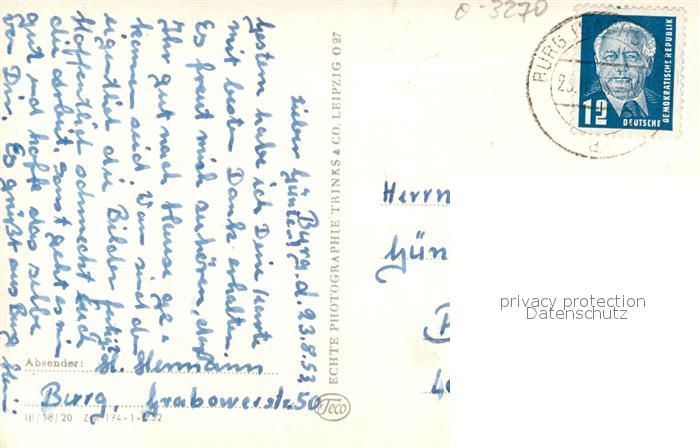 o-3270
BURG
12
DEUTSCHE
DEMOKRATISCHE REPUBLIK
Burg, d. 23.8.53
Lieber Günter,
Gestern habe ich Deine Karte
mit besten Dank erhalten.
Es freut mich zuhören, daß
Ihr gut nach Hause ge-
kommen seid. Wann sind denn
eigentlich die Bilder fertig?
Hoffentlich schmeckt Euch
die Arbeit, sonst geht es mir
gut und hoffe das selbe
von Dir. Es grüßt aus Burg
ECHTE PHOTOGRAPHIE TRINKS & CO. LEIPZIG O 27
Herrn
Gün
privacy protection
Datenschutz
Absender: H. Hermann
Burg, Grabowerstr. 50
III/18/20
Teco